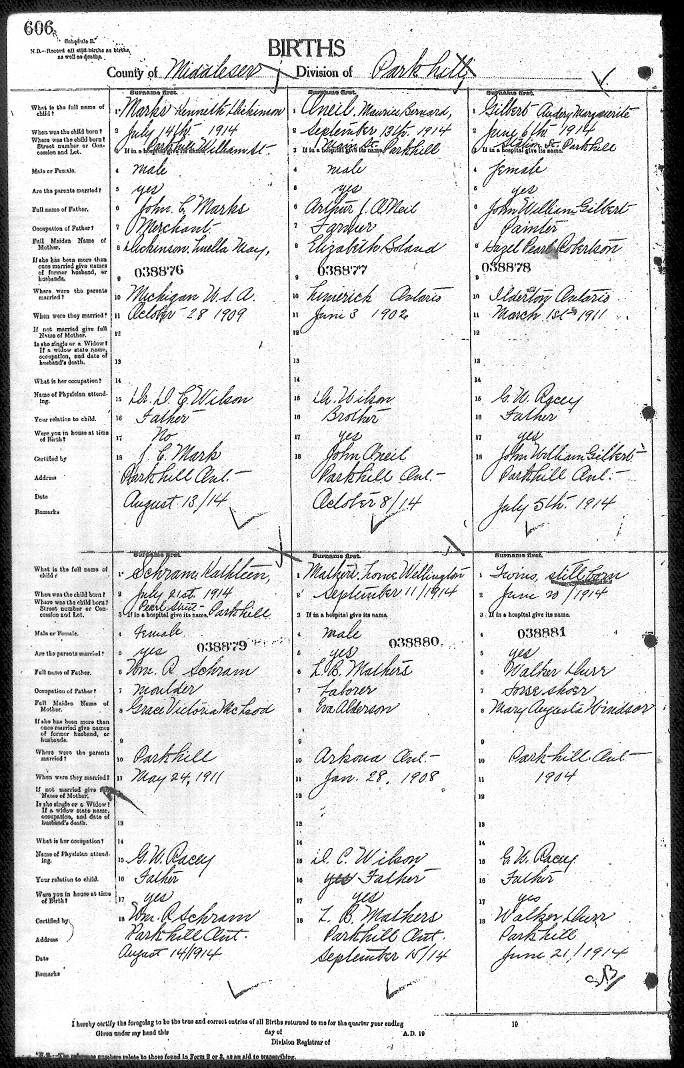 606
Schedule B.
N.B.—Record all still births as births, as well as deaths.
BIRTHS
County of Middlesex Division of Parkhill
Surname first. Surname first. Surname first.
What is the full name of child? 1 Marks Kenneth Dickinson 1 Oneil, Maurice Bernard, 1 Gilbert Audery Marguerite
When was the child born? 2 July 14th, 1914 2 September 13th, 1914 2 June 6th 1914
Where was the child born? Street number or Concession and Lot. 3 If in a hospital give its name. Parkhill William St. 3 If in a hospital give its name. Main St. Parkhill 3 If in a hospital give its name. Station St. Parkhill
Male or Female. 4 male 4 male 4 female
Are the parents married? 5 yes 5 yes 5 yes
Full name of Father. 6 John C. Marks 6 Arthur J. O'Neil 6 John William Gilbert
Occupation of Father? 7 Merchant 7 Farmer 7 Painter
Full Maiden Name of Mother. 8 Dickinson, Luella May, 8 Elizabeth Boland 8 Hazel Pearl Robertson
If she has been more than once married give names of former husband, or husbands. 9 038876 9 038877 9 038878
Where were the parents married? 10 Michigan U.S.A. 10 Limerick Ontario 10 Ilderton Ontario
When were they married? 11 October 28 1909 11 June 3 1902 11 March 1st 1911
If not married give full Name of Mother. 12 12 12
Is she single or a Widow? If a widow state name, occupation, and date of husband's death. 13 13 13
What is her occupation? 14 14 14
Name of Physician attending. 15 Dr. D. C. Wilson 15 Dr. Wilson 15 G. W. Racey
Your relation to child. 16 Father 16 Brother 16 Father
Were you in house at time of Birth? 17 No 17 yes 17 yes
Certified by 18 J. C. Mark 18 John Oneil 18 John William Gilbert
Address Parkhill Ont. Parkhill Ont. Parkhill Ont.
Date August 13/14 October 8/14 July 5th. 1914
Remarks
Surname first. Surname first. Surname first.
What is the full name of child? 1 Schram, Kathleen, 1 Wellington 1 still born
When was the child born? 2 July 21st, 1914 2 September 11/1914 2 June 20/1914
Where was the child born? Street number or Concession and Lot. 3 If in a hospital give its name. Pearl Street Parkhill 3 If in a hospital give its name. 3 If in a hospital give its name.
Male or Female. 4 female 038879 4 male 038880 4 038881
Are the parents married? 5 yes 5 yes 5 yes
Full name of Father. 6 Wm. R. Schram 6 L. B. Mathers 6 Walker Durr
Occupation of Father? 7 moulder 7 Laborer 7 Horse shoer
Full Maiden Name of Mother. 8 Grace Victoria McLeod 8 Eva Alderson 8 Mary Augusta Windsor
If she has been more than once married give names of former husband, or husbands. 9 9 9
Where were the parents married? 10 Parkhill 10 Arkona Ont. 10 Parkhill Ont
When were they married? 11 May 24, 1911 11 Jan. 28, 1908 11 1904
If not married give full Name of Mother. 12 12 12
Is she single or a Widow? If a widow state name, occupation, and date of husband's death. 13 13 13
What is her occupation? 14 14 14
Name of Physician attending. 15 G. W. Racey 15 D. C. Wilson 15 G. W. Racey
Your relation to child. 16 Father 16 yes Father 16 Father
Were you in house at time of Birth? 17 yes 17 yes 17 yes
Certified by 18 Wm. R. Schram 18 L. B. Mathers 18 Walker Durr
Address Parkhill Ont. Parkhill Ont. Parkhill
Date August 14/1914 September 15/14 June 21/1914
Remarks
I hereby certify the foregoing to be the true and correct entries of all Births returned to me for the quarter year ending 19
Given under my hand this day of A.D. 19
Division Registrar of
N.B.—The reference numbers relate to those found in Form 2 or 3, as an aid to transcribing.